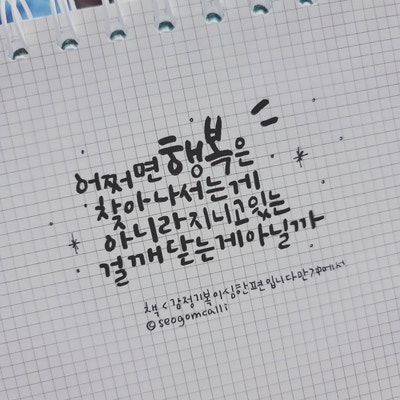 어쩌면 행복은
찾아 나서는게
아니라 지니고 있는
걸 깨닫는게 아닐까
책 <감정기복이 심한 편입니다만> 中에서
©seogomcalli